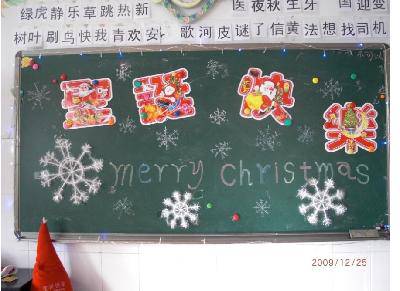 绿虎静乐草跳热新 医夜秋生牙 国迎变
树叶刷鸟快我青欢安 歌河皮谜了信黄法想找司机
圣诞快乐
merry christmas
2009/12/25